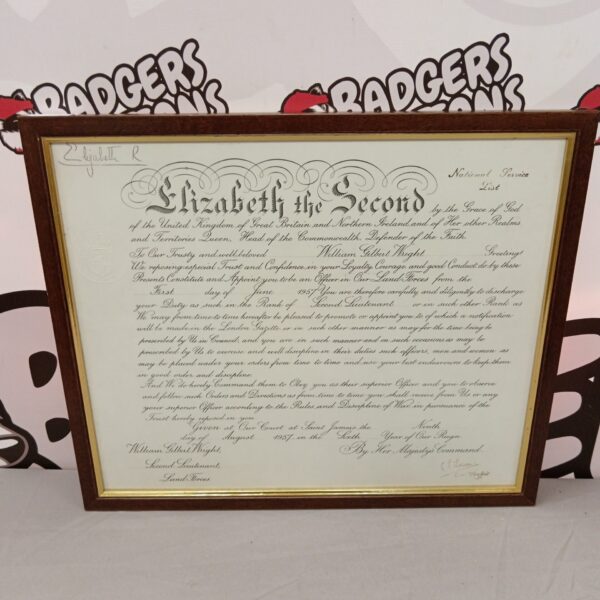 BADGERS
BADGERS
Elizabeth R
National Service
List
Elizabeth the Second by the Grace of God
of the United Kingdom of Great Britain and Northern Ireland and of Her other Realms
and Territories Queen, Head of the Commonwealth, Defender of the Faith.
To Our Trusty and well beloved William Gilbert Wright Greeting!
We reposing especial Trust and Confidence in your Loyalty Courage and good Conduct do by these
Presents Constitute and Appoint you to be an Officer in Our Land Forces from the
First day of June 1957 You are therefore carefully and diligently to discharge
your Duty as such in the Rank of Second Lieutenant or in such other Rank as
We may from time to time hereafter be pleased to promote or appoint you to of which a notification
will be made in the London Gazette or in such other manner as may for the time being be
prescribed by Us in Council, and you are in such manner and on such occasions as may be
prescribed by Us to exercise and well discipline in their duties such officers, men and women as
may be placed under your orders from time to time and use your best endeavours to keep them
in good order and discipline.
And We do hereby Command them to Obey you as their superior Officer and you to observe
and follow such Orders and Directions as from time to time you shall receive from Us or any
your superior Officer according to the Rules and Discipline of War in pursuance of the
Trust hereby reposed in you.
Given at Our Court at Saint James's the Ninth
day of August 1957 in the Sixth Year of Our Reign
William Gilbert Wright, By Her Majesty's Command.
Second Lieutenant,
Land Forces